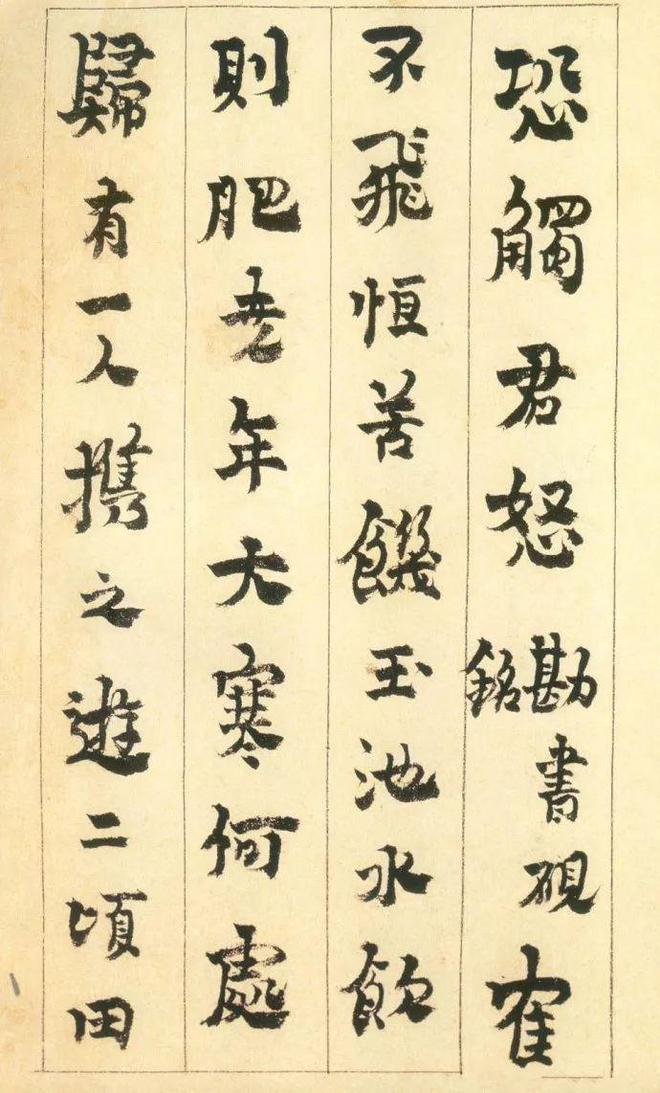 恐觸君怒 勘書硯銘 寉
不飛恒苦饑玉池水飲
則肥尭年大寒何處
歸有一人携之遊二頃田